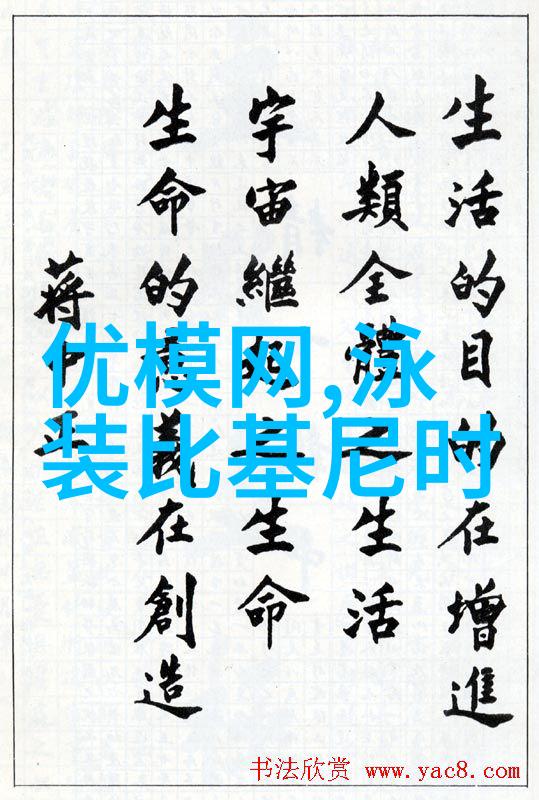 生活的目的在增進
人類全體之生活
宇宙繼起之生命
生命的意義在創造
蔣中正
优模网,泳
装比基尼时
书法欣赏 www.yac8.com